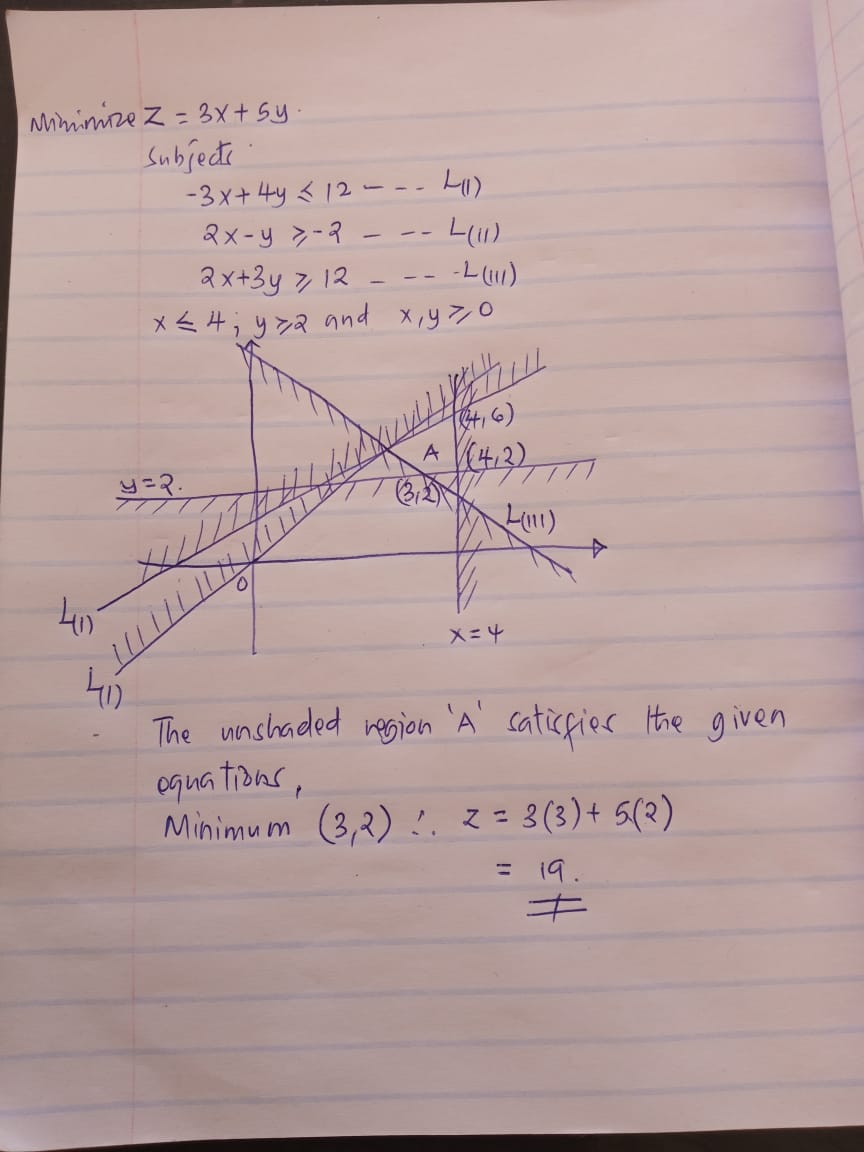 Minimize Z = 3x + 5y.
Subjects
-3x + 4y ≤ 12 - - - L(I)
2x - y ≥ -2 - - - L(II)
2x + 3y ≥ 12 - - - - L(III)
x ≤ 4; y ≥ 2 and x, y ≥ 0
(4,6)
A (4,2)
y = 2.
(3,2)
L(III)
0
L(I)
x = 4
L(I)
The unshaded region 'A' satisfies the given
equations,
Minimum (3,2) ∴ z = 3(3) + 5(2)
= 19.